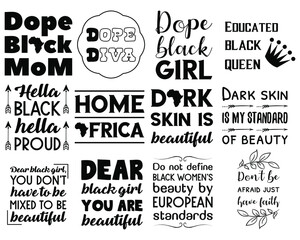 Dope
Black
MoM
DOPE
DIVA
Dope
black
GIRL
EDUCATED
BLACK
QUEEN
Hella
BLACK
hella
PROUD
HOME
AFRICA
DARK
SKIN IS
beautiful
DARK SKIN
IS MY STANDARD
OF BEAUTY
Dear black girl,
YOU DON'T
HAVE TO BE
MIXED TO BE
beautiful
DEAR
black girl
YOU ARE
BEAUTIFUL
Do not define
BLACK WOMEN'S
beauty by
EUROPEAN
standards
Don't be
AFRAID JUST
have faith